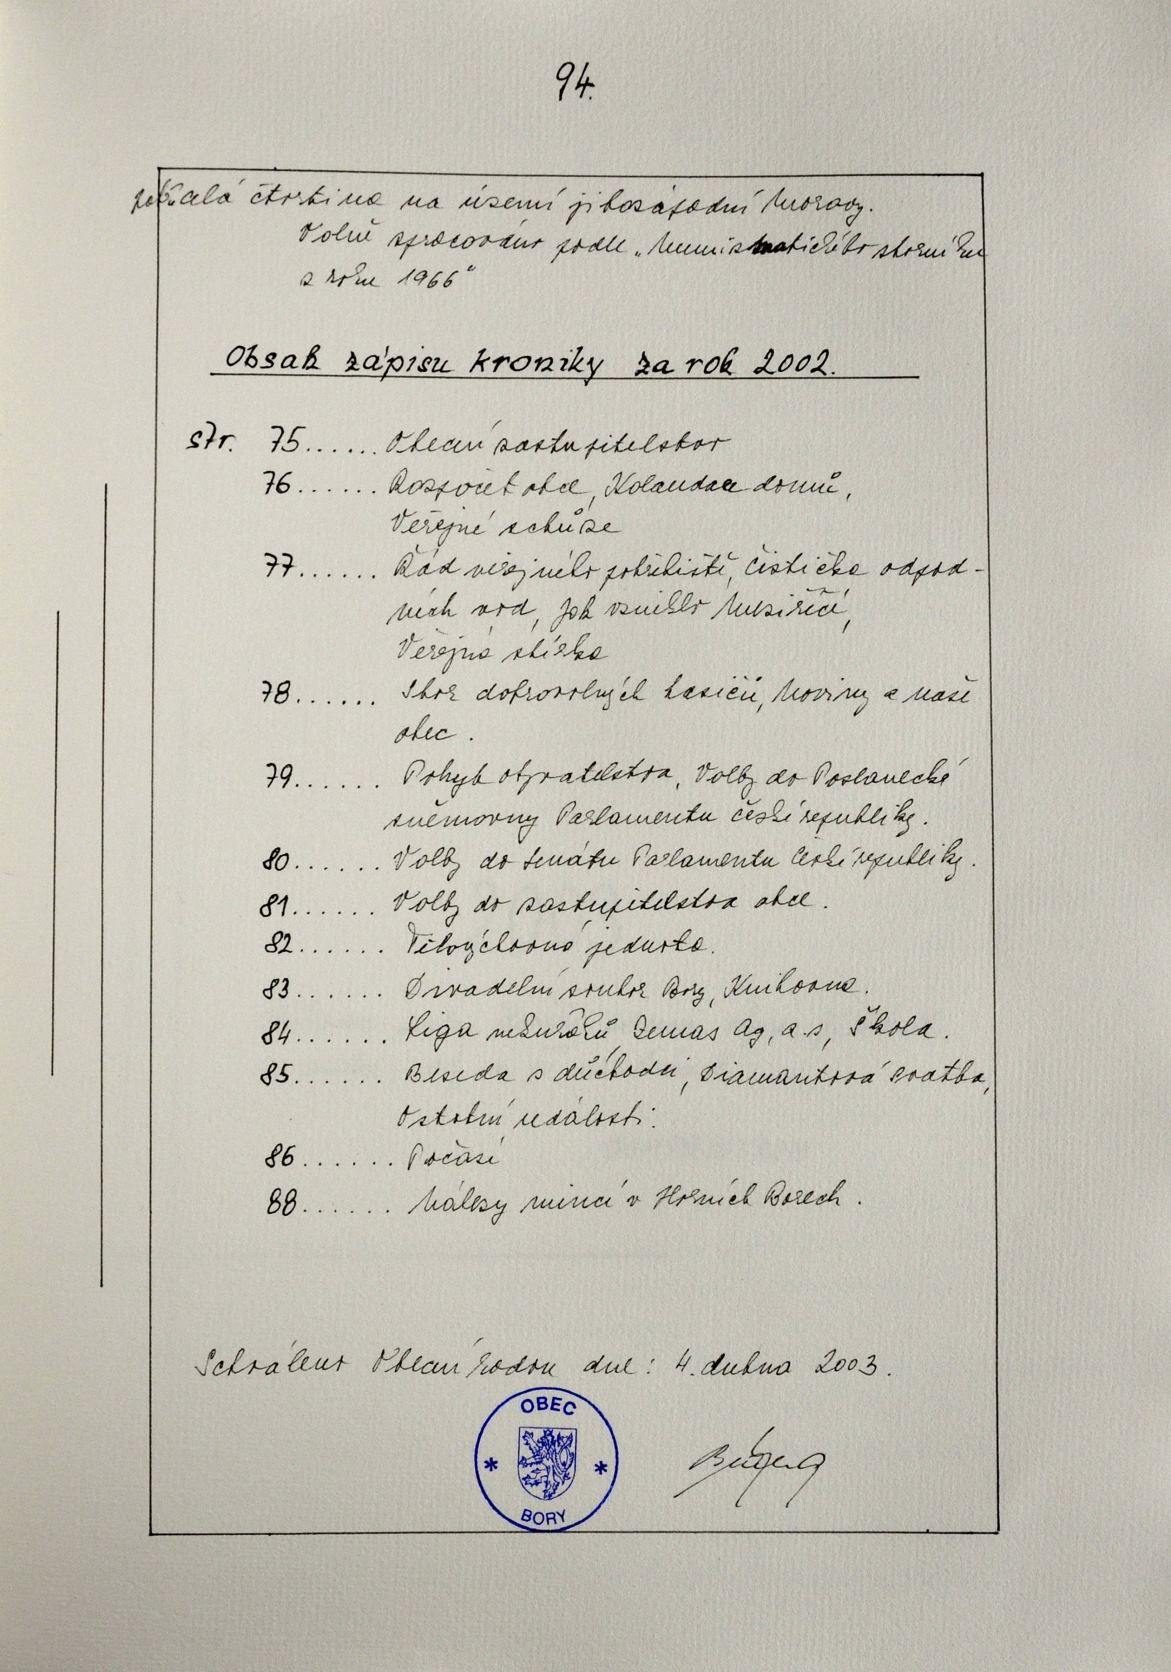 94.
čtvrtina na území jihozápadní Moravy.
Volně zpracováno podle „Numismatického sborníku
z roku 1966"
Obsah zápisu kroniky za rok 2002.
str. 75...... Obecní zastupitelstvo
76...... Rozpočet obce, Kolaudace domů,
Veřejné schůze
77...... Řád veřejného pohřebiště, čistička odpad-
ních vod, Jak vzniklo Meziříčí,
Veřejná sbírka
78...... Sbor dobrovolných hasičů, Noviny a naše
obec.
79...... Pohyb obyvatelstva, Volby do Poslanecké
sněmovny Parlamentu české republiky.
80...... Volby do senátu Parlamentu České republiky.
81...... Volby do zastupitelstva obce.
82...... Tělovýchovná jednota.
83...... Divadelní soubor Bory, Knihovna.
84...... Liga nekuřáků, Zemas Ag, a.s, Škola.
85...... Beseda s důchodci, Diamantová svatba,
Ostatní události.
86...... Počasí
88...... Nálezy mincí v Horních Borech.
Schváleno Obecní radou dne: 4. dubna 2003.
OBEC
* *
BORY